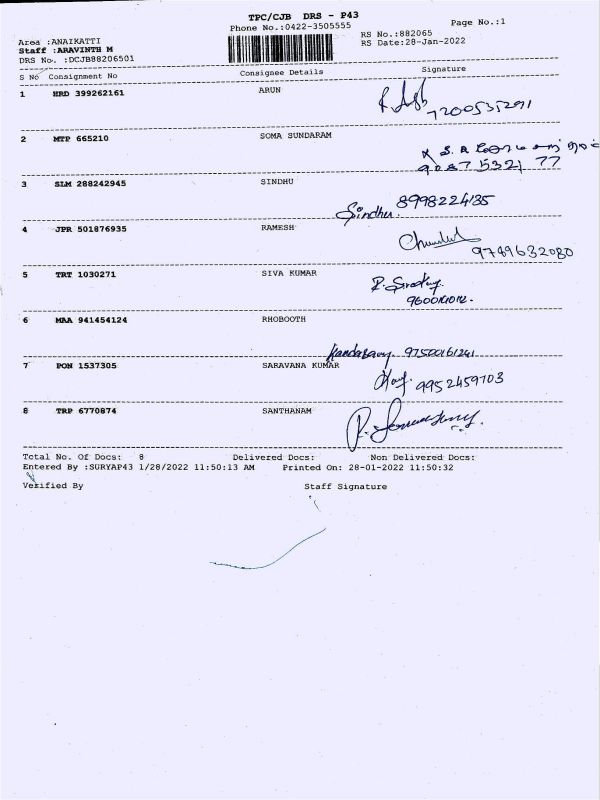 TPC/CJB DRS - P43
Phone No.:0422-3505555
Page No.:1
Area :ANAIKATTI
Staff :ARAVINTH M
DRS No. :DCJB88206501
RS No.:882065
RS Date:28-Jan-2022
S No Consignment No Consignee Details Signature
1 HRD 399262161 ARUN
7200535291
2 MTP 665210 SOMA SUNDARAM
90875321 77
3 SLM 288242945 SINDHU
Sindhu. 8998224135
4 JPR 501876935 RAMESH
9749632080
5 TRT 1030271 SIVA KUMAR
6 MAA 941454124 RHOBOOTH
Kandasamy. 97500161241
7 PON 1537305 SARAVANA KUMAR
9952459703
8 TRP 6770874 SANTHANAM
Total No. Of Docs: 8 Delivered Docs: Non Delivered Docs:
Entered By :SURYAP43 1/28/2022 11:50:13 AM Printed On: 28-01-2022 11:50:32
Verified By Staff Signature